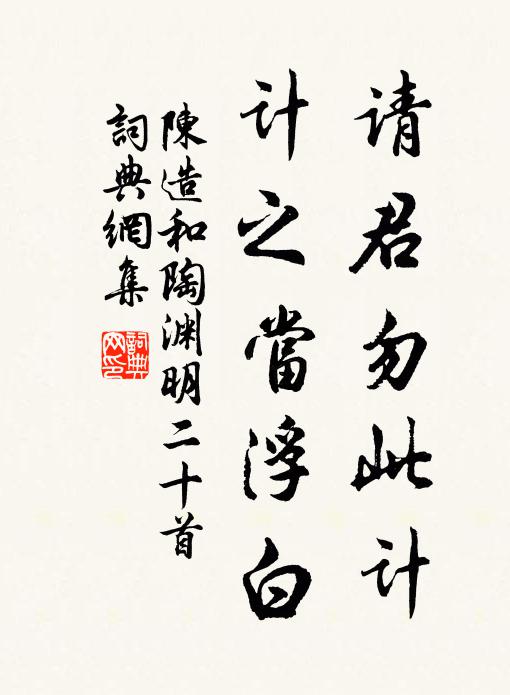 请君勿此计
计之當浮白
陳造和陶渊明二十首
詞典網集
詞典网印